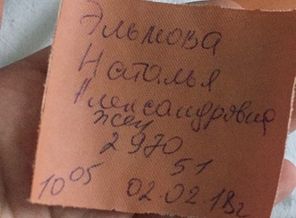 Эльмова
Наталья
Александровна
жен
2970
51
10 05 02 02 18г